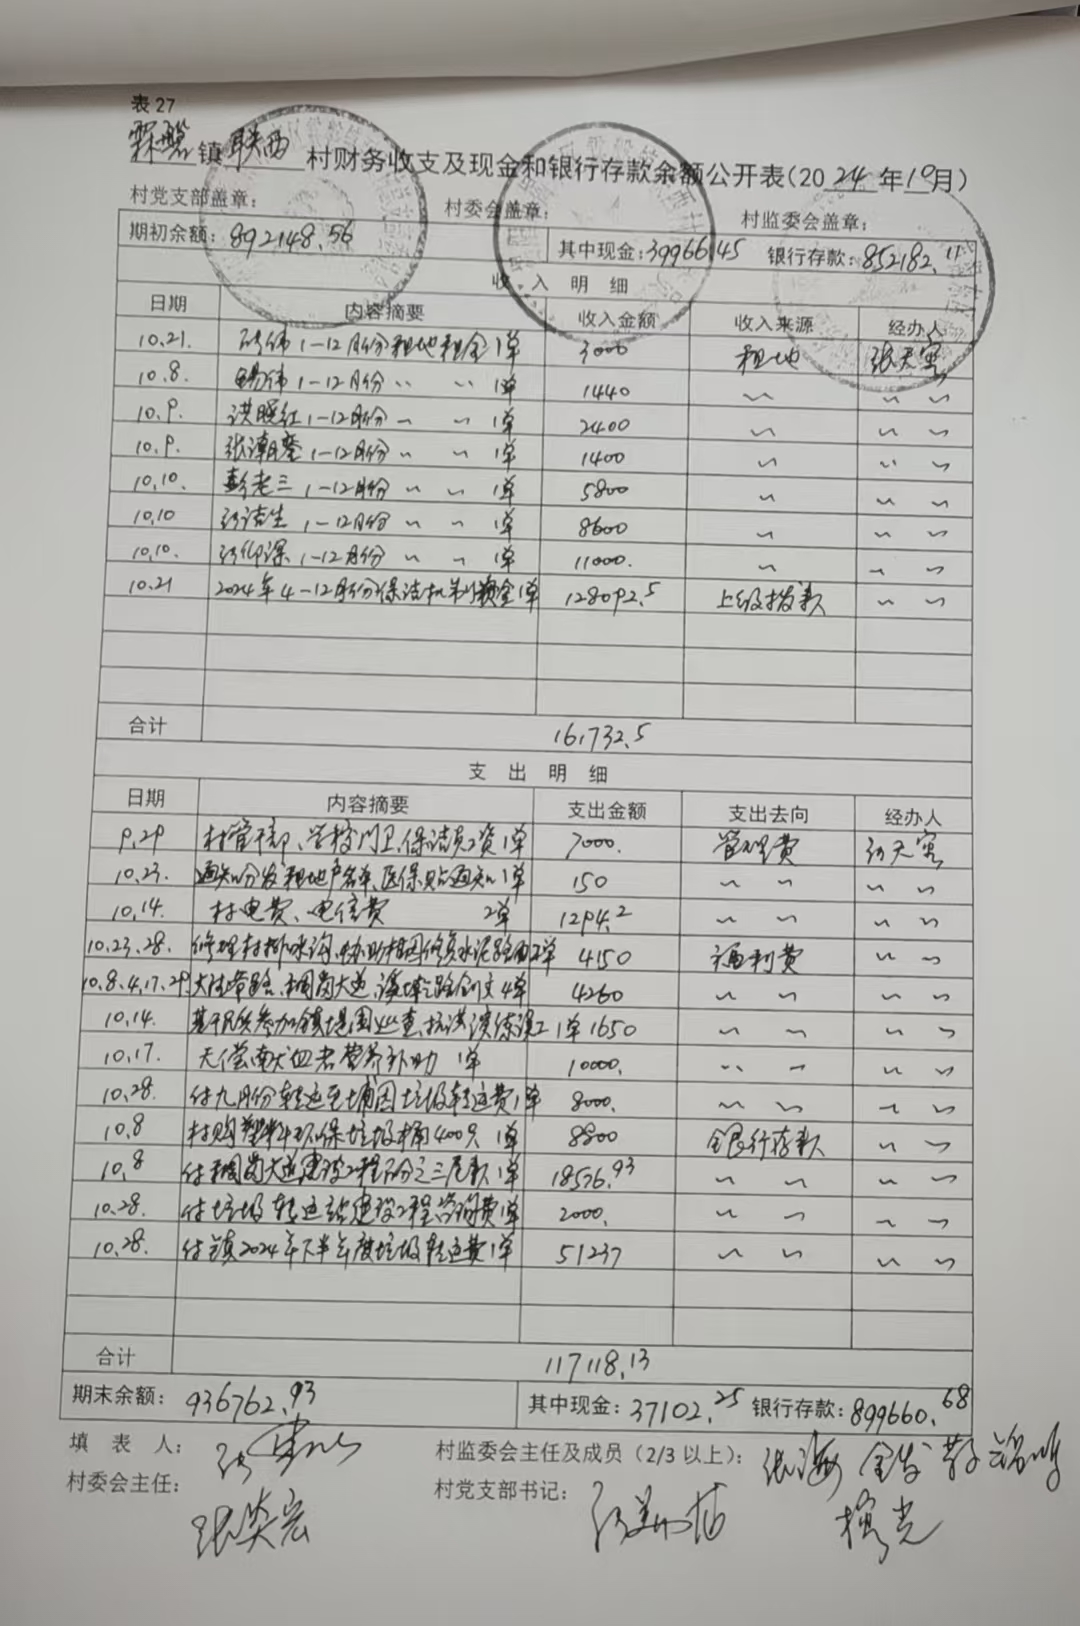 表27
霖磐镇联西村财务收支及现金和银行存款余额公开表(2024年10月)
村党支部盖章: 村委会盖章: 村监委会盖章:
期初余额: 892148.56 其中现金: 39966.45 银行存款: 852182.11
收入明细
日期 内容摘要 收入金额 收入来源 经办人
10.21. 1-12月份租地租金1单 3000 租地
10.8. 1-12月份 〃 〃 1单 1440 〃 〃 〃
10.9. 洪晓红1-12月份 〃 〃 1单 2400 〃 〃 〃
10.9. 张潮 1-12月份 〃 〃 1单 1400 〃 〃 〃
10.10. 彭老三1-12月份 〃 〃 1单 5800 〃 〃 〃
10.10 1-12月份 〃 〃 1单 8600 〃 〃 〃
10.10. 1-12月份 〃 〃 1单 11000. 〃 〃 〃
10.21 2024年4-12月份保洁机制资金1单 128092.5 上级拨款 〃 〃
合计 161732.5
支出明细
日期 内容摘要 支出金额 支出去向 经办人
9.29 村管干部、学校门卫、保洁员工资1单 7000. 管理费
10.23. 通知分发租地户名单、医保贴通知1单 150 〃 〃 〃 〃
10.14. 村电费、电信费 2单 1294.2 〃 〃 〃 〃
10.23.28. 修理村排水沟、 修复水泥路面2单 4150 福利费 〃 〃
10.8.4.17.29 大道 4单 4260 〃 〃 〃 〃
10.14. 基干民兵参加镇堤围巡查、抗洪演练误工1单 1650 〃 〃 〃 〃
10.17. 无偿献血者营养补助 1单 10000. 〃 〃 〃 〃
10.28. 付九月份转运至埔 垃圾转运费1单 8000. 〃 〃 〃 〃
10.8 村购塑料环保垃圾桶400只 1单 8800 银行存款 〃 〃
10.8 付 大道建设工程百分之三尾款1单 18576.93 〃 〃 〃 〃
10.28. 付垃圾转运站建设工程咨询费1单 2000. 〃 〃 〃 〃
10.28. 付镇2024年下半年度垃圾转运费1单 51237 〃 〃 〃 〃
合计 117118.13
期末余额: 936762.93 其中现金: 37102.25 银行存款: 899660.68
填表人: 村监委会主任及成员(2/3以上):
村委会主任: 张奕宏 村党支部书记: